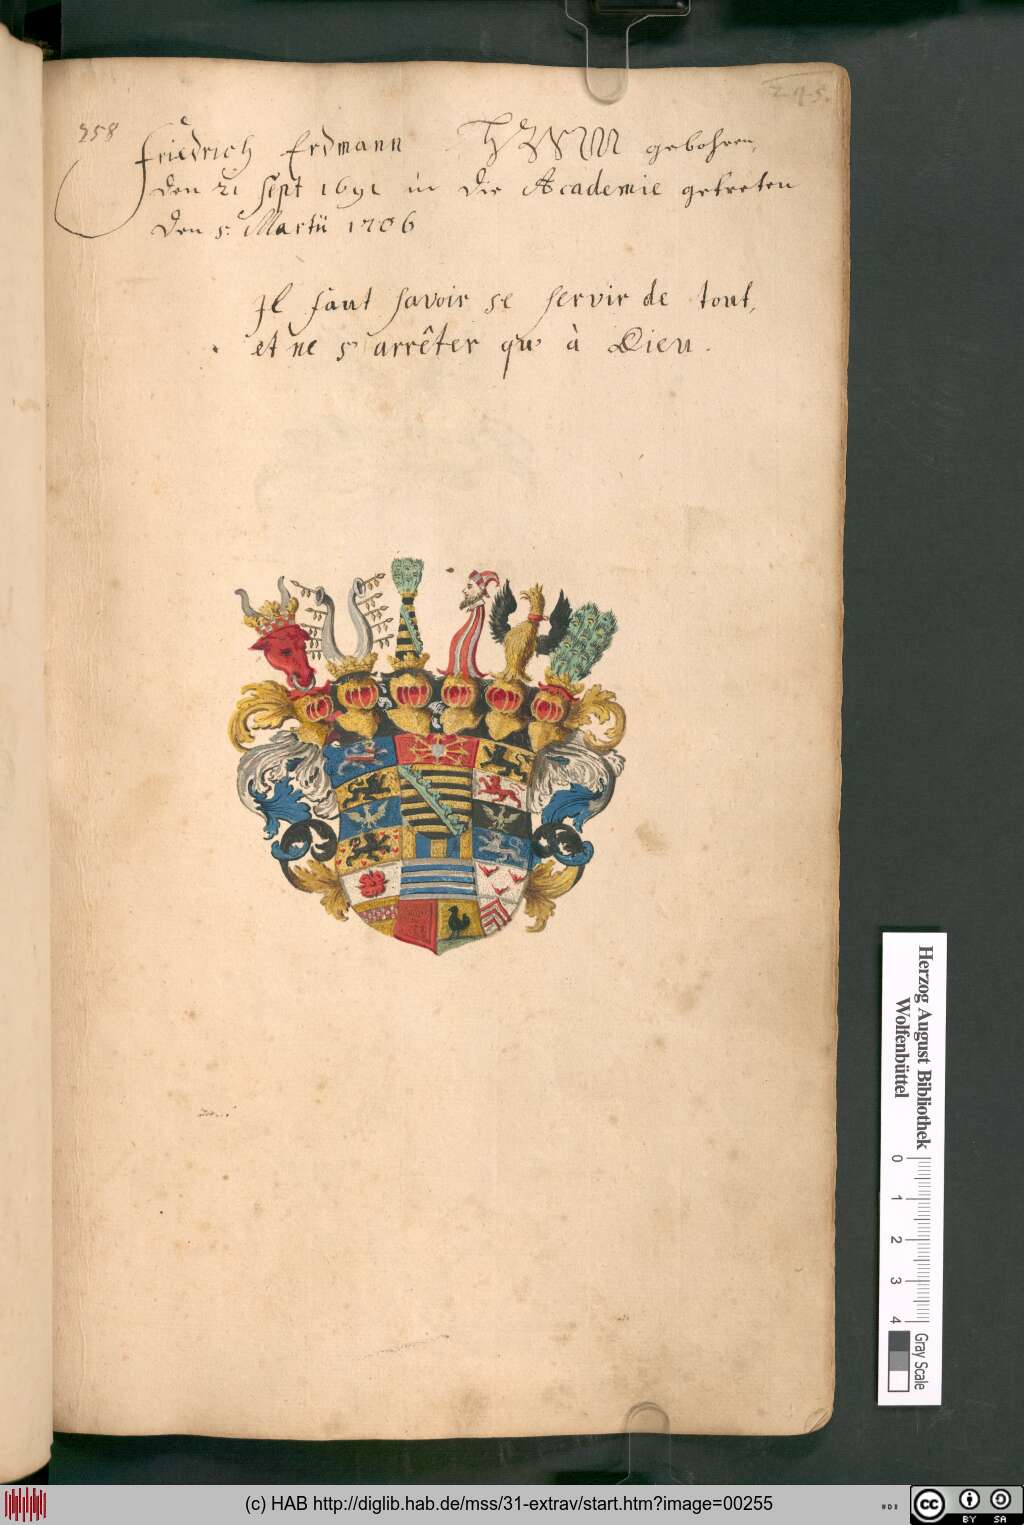 245.
358
Friedrich Erdmann gebohren,
den 21 Sept 1691 in die Academie getreten
den 5. Martii 1706
Il faut savoir se servir de tout,
et ne s'arrêter qu' à Dieu.
Herzog August Bibliothek
Wolfenbüttel
0 1 2 3 4
Gray Scale
(c) HAB http://diglib.hab.de/mss/31-extrav/start.htm?image=00255
cc BY SA